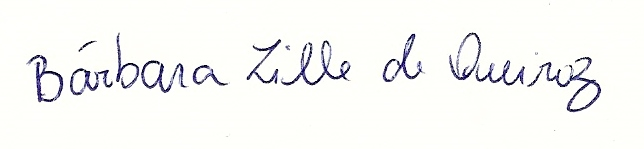 Bárbara Lille de Queiroz